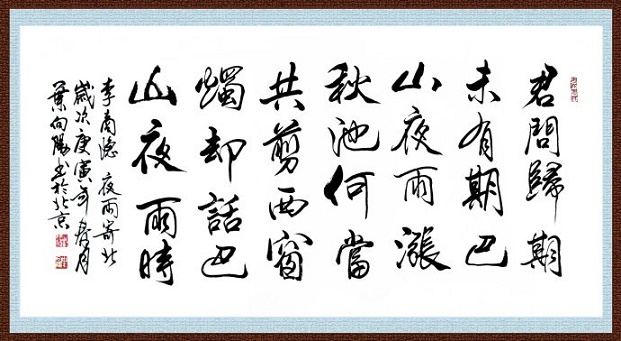 君問歸期
未有期巴
山夜雨漲
秋池何當
共剪西窗
燭却話巴
山夜雨時
李商隐夜雨寄北
歲次庚寅年春月
葉向陽书於北京